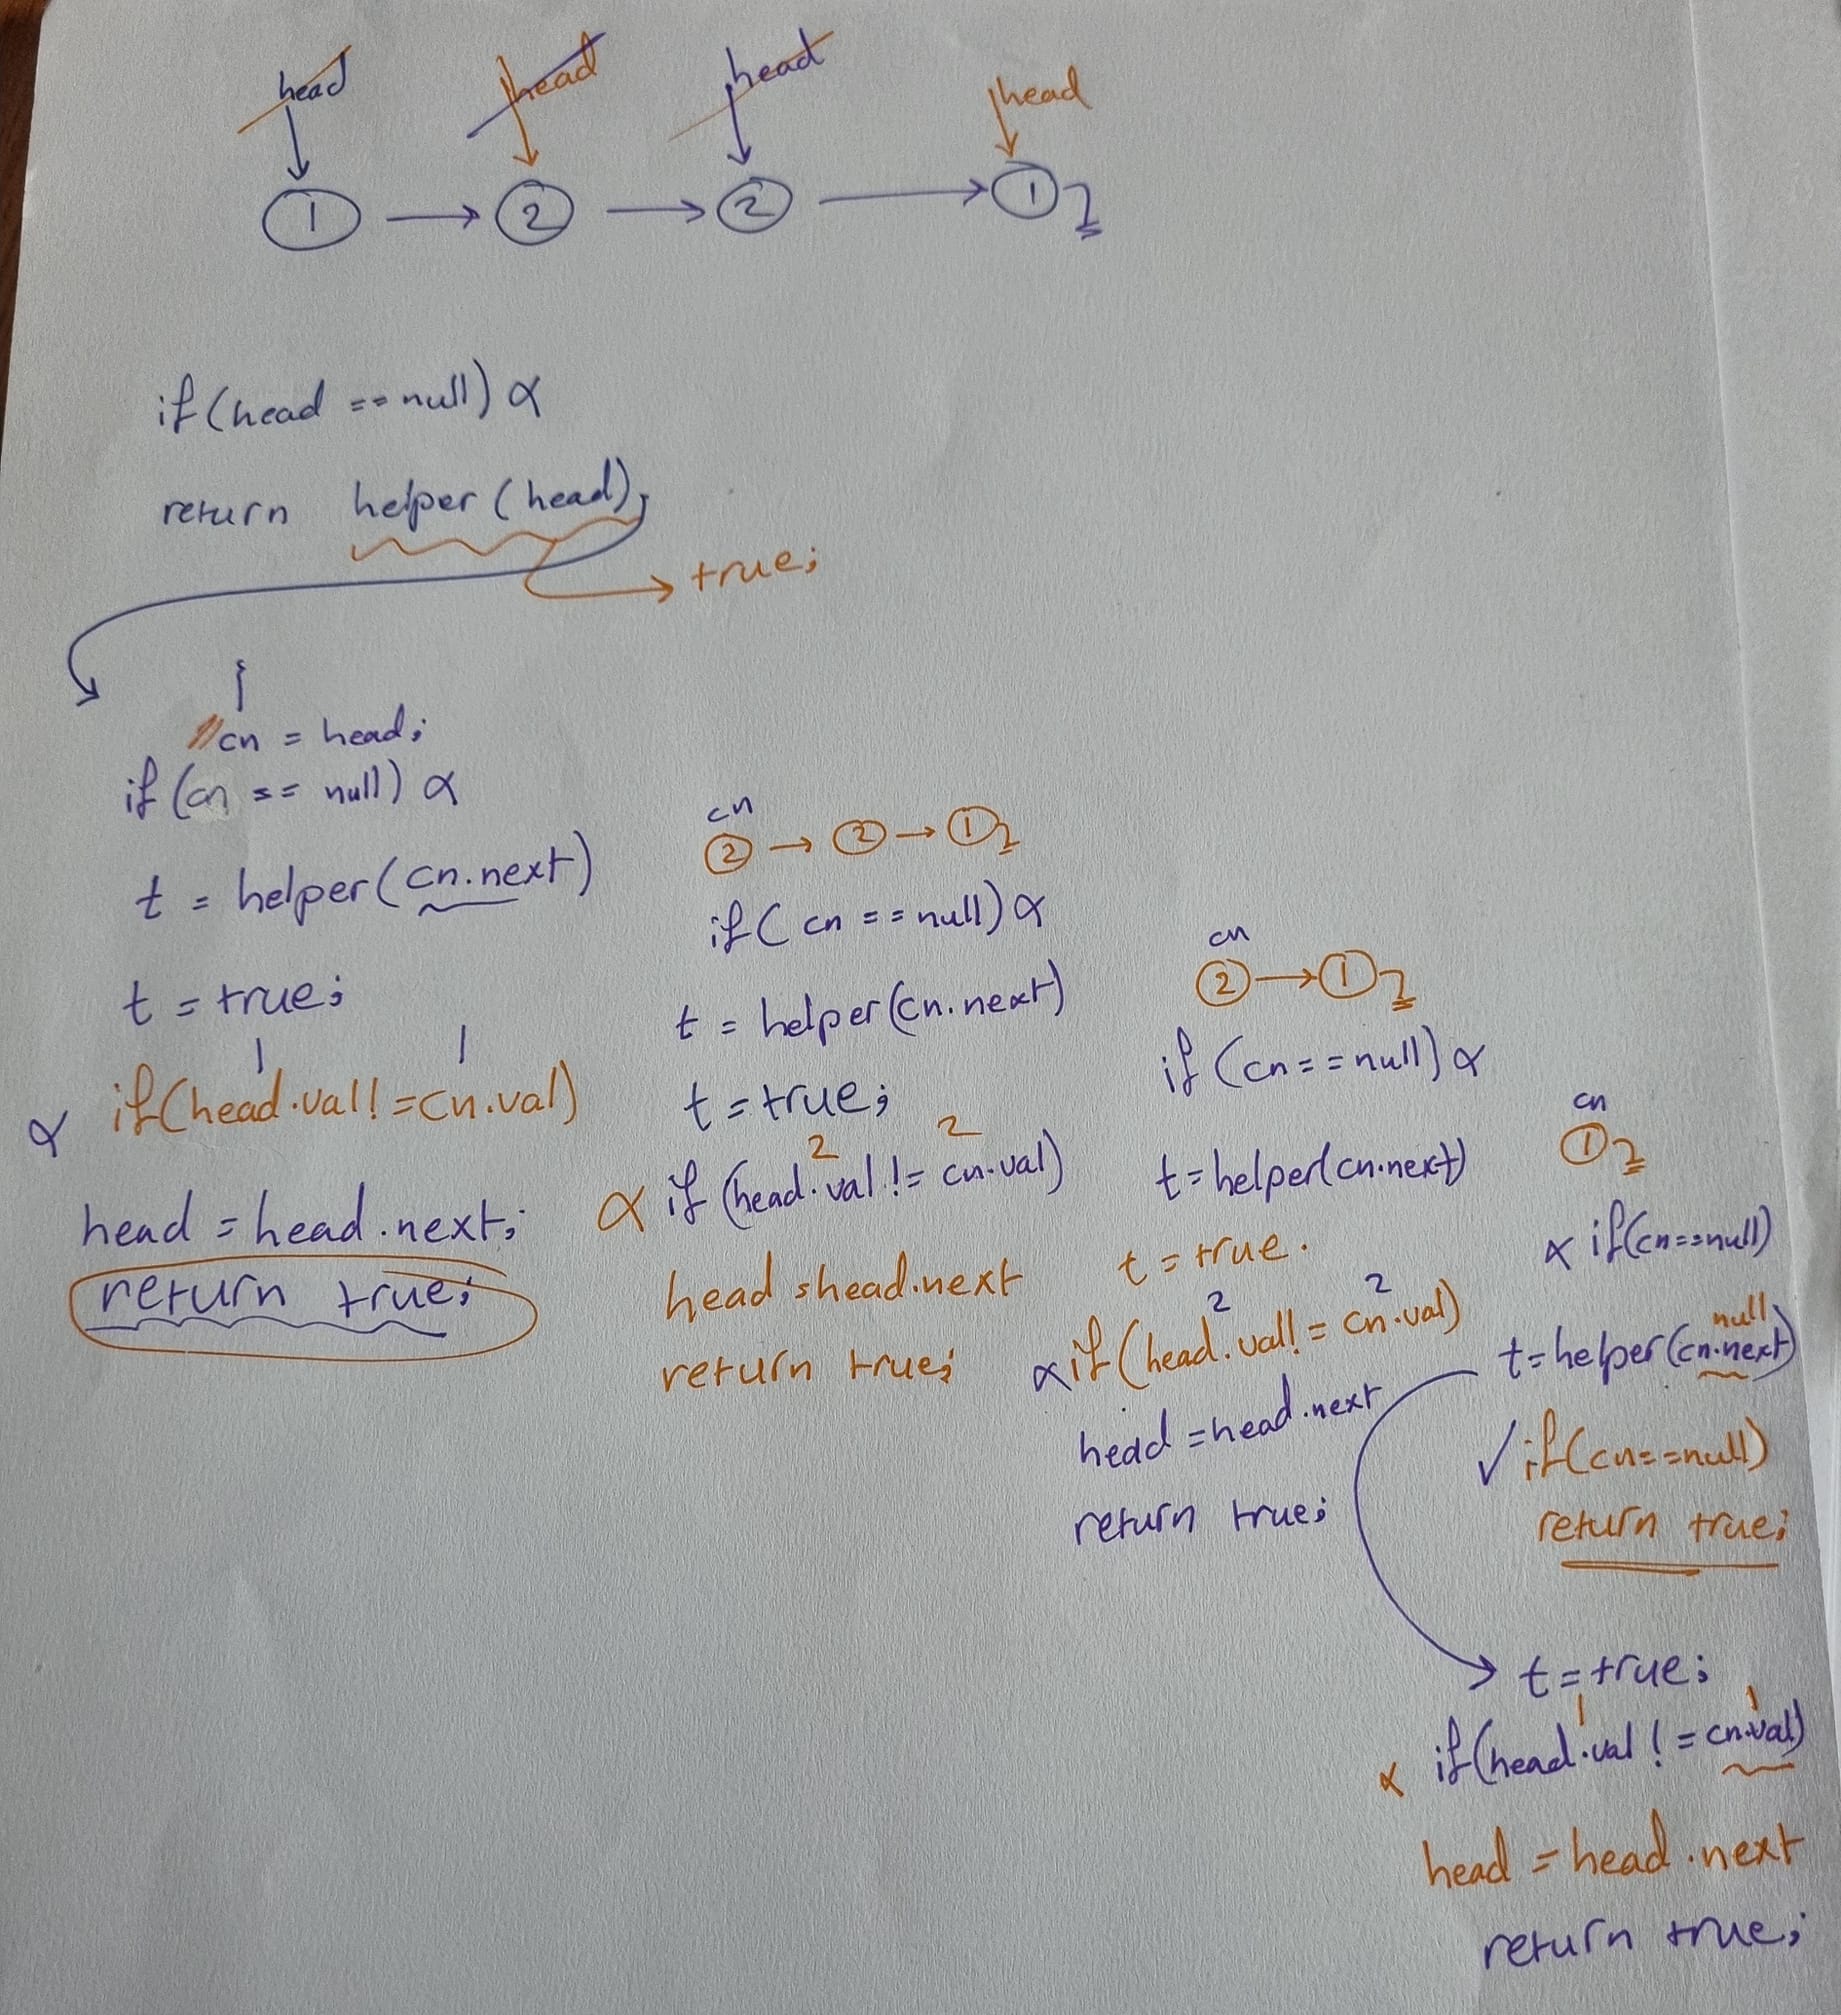 head head head head
1 → 2 → 2 → 1
if (head == null) ∝
return helper (head);
true;
1
// cn = head;
if (cn == null) ∝
t = helper (cn.next)
t = true;
1 1
∝ if (head.val != cn.val)
head = head.next;
return true;
cn
2 → 2 → 1
if ( cn == null) ∝
t = helper (cn.next)
t = true;
2 2
∝ if (head.val != cn.val)
head = head.next
return true;
cn
2 → 1
if (cn == null) ∝
t = helper (cn.next)
t = true.
2 2
∝ if (head.val != cn.val)
head = head.next
return true;
cn
1
∝ if (cn == null)
null
t = helper (cn.next)
✓ if (cn == null)
return true;
t = true;
1 1
∝ if (head.val != cn.val)
head = head.next
return true;